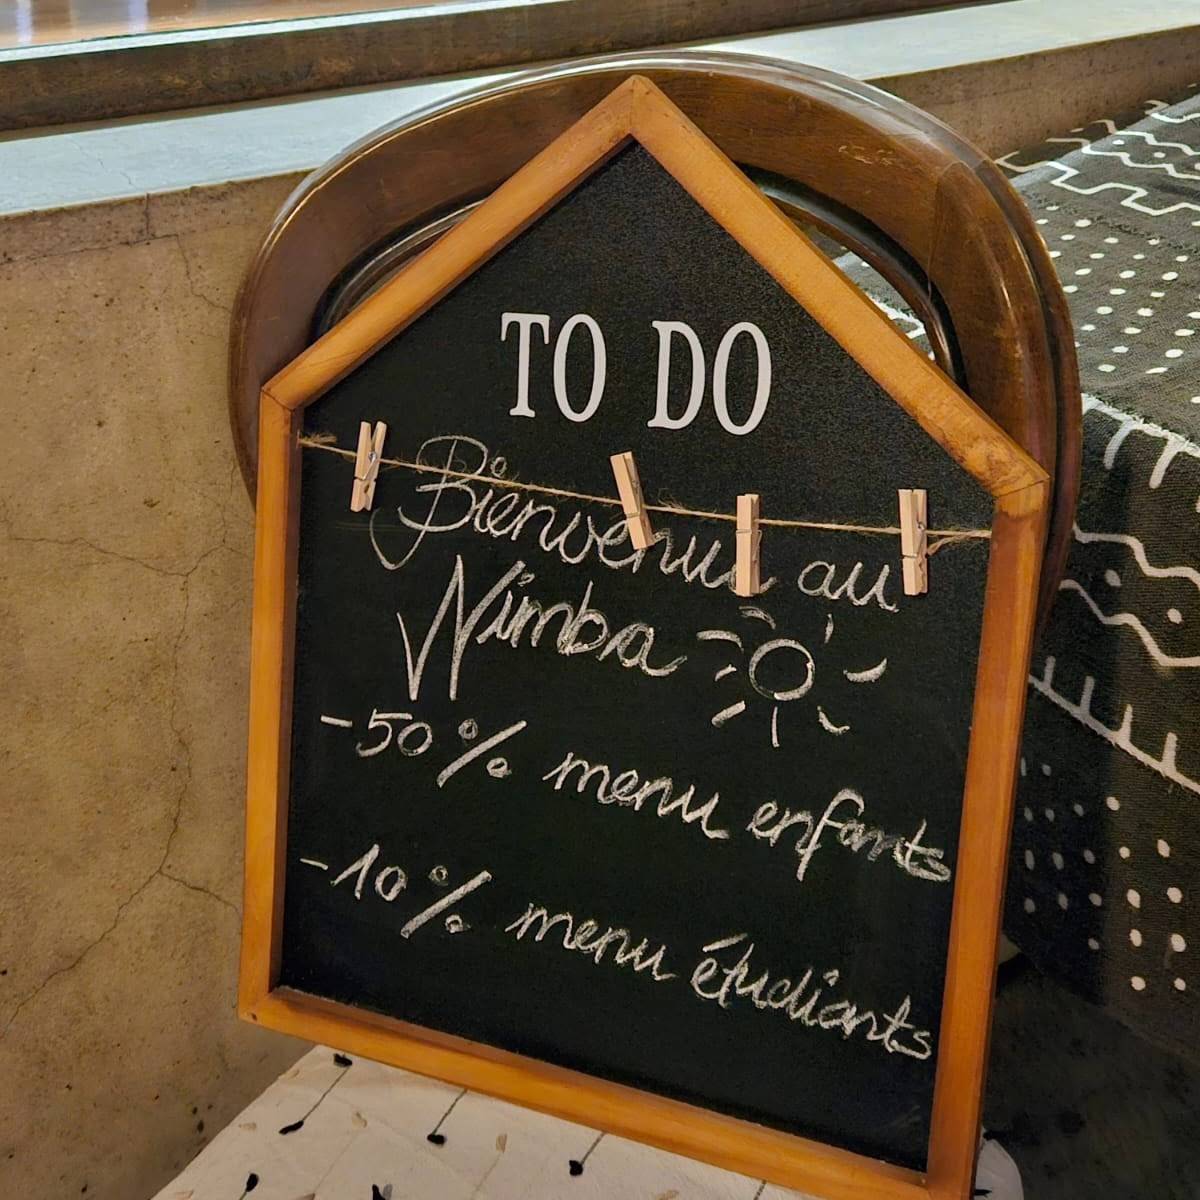 TO DO
Bienvenue au
Nimba
-50% menu enfants
-10% menu étudiants